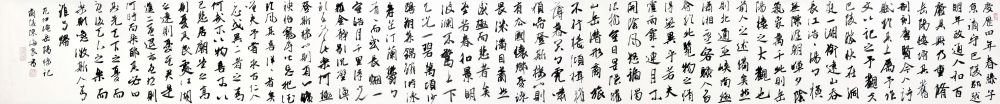 慶曆四年春滕子
京謫守巴陵郡越
明年政通人和百
廢具興乃重修
岳陽樓增其舊制
刻唐賢今人詩
賦于其上屬予作
文以記之予觀夫
巴陵勝狀在洞
庭一湖銜遠山吞
長江浩浩湯湯橫
無際涯朝暉夕陰
氣象萬千此則岳
陽樓之大觀也
前人之述備矣然
則北通巫峽南極
瀟湘遷客騷人多
會于此覽物之情
得無異乎若夫
霪雨霏霏連月不
開陰風怒號濁
浪排空日星隱耀
山岳潛形商旅
不行檣傾楫摧
薄暮冥冥虎嘯
猿啼登斯樓也則
有去國懷鄉憂讒
畏譏滿目蕭然
感極而悲者矣
至若春和景明
波瀾不驚上下
天光一碧萬頃沙
鷗翔集錦鱗游泳
岸芷汀蘭鬱鬱
青青而或長煙一
空皓月千里浮光
躍金靜影沉璧
漁歌互答此樂何極
登斯樓也則有心曠
神怡寵辱皆忘把酒
臨風其喜洋洋者矣
嗟夫予嘗求古仁人
之心或異二者之為
何哉不以物喜不以
己悲居廟堂之高
則憂其民處江湖
之遠則憂其君是
進亦憂退亦憂然則
何時而樂耶其必曰
先天下之憂而憂
後天下之樂而樂
乎噫微斯人吾
誰與歸
范仲淹岳陽樓記
蘭陵陳海良書